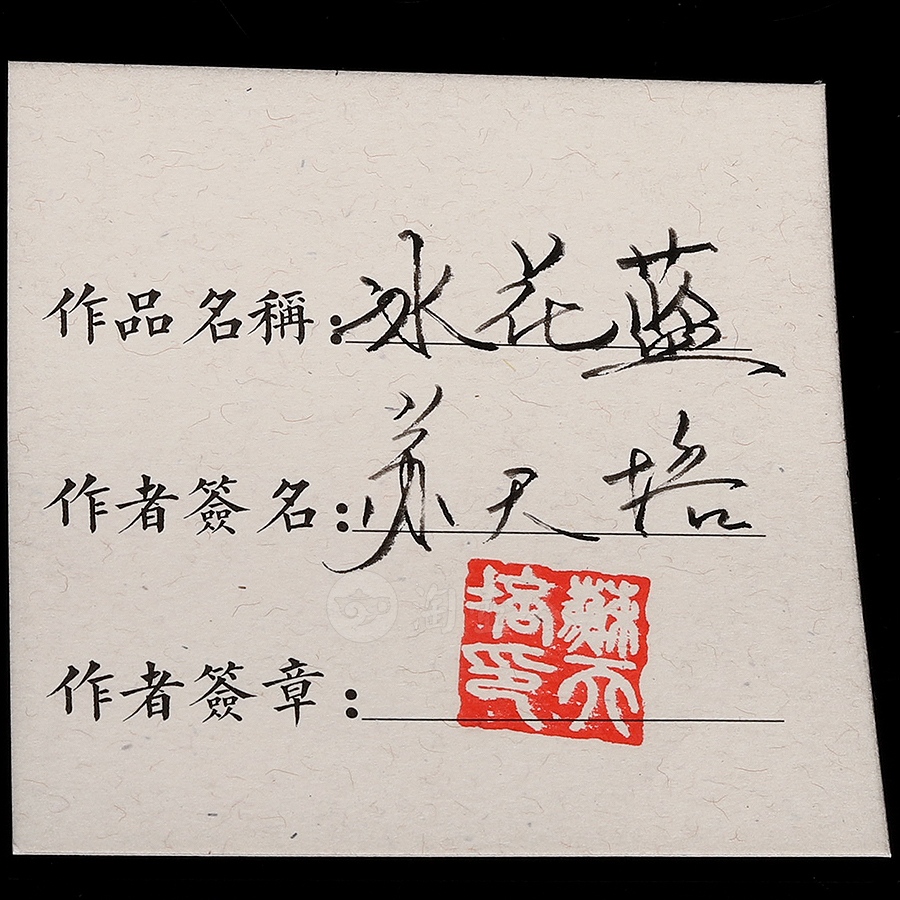 作品名稱:冰花蓝
作者簽名:苏天培
作者簽章:
蘇天培印